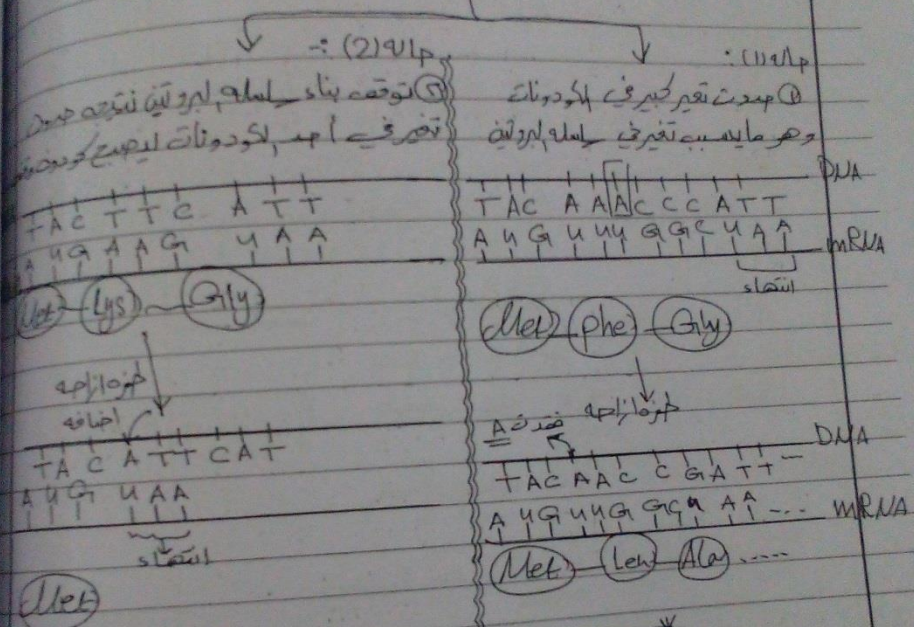 حاله (1) :
① حدوث تغير كبير في الكودونات
وهو ما يسبب تغير في سلسله البروتين
DNA
T A C A A A C C C A T T
A U G U U U G G C U A A
mRNA
انتهاء
Met Phe Gly
طفرة ازاحه
فقدت A
DNA
T A C A A C C G A T T
A U G U U G G C U A A ....
mRNA
Met Leu Ala .....
حاله (2) :-
② توقف بناء سلسله البروتين نتيجه حدوث
تغير في أحد الكودونات ليصبح كودون
T A C T T C A T T
A U G A A G U A A
Met Lys Gly
طفرة ازاحه
اضافه
T A C A T T C A T
A U G U A A
انتهاء
Met